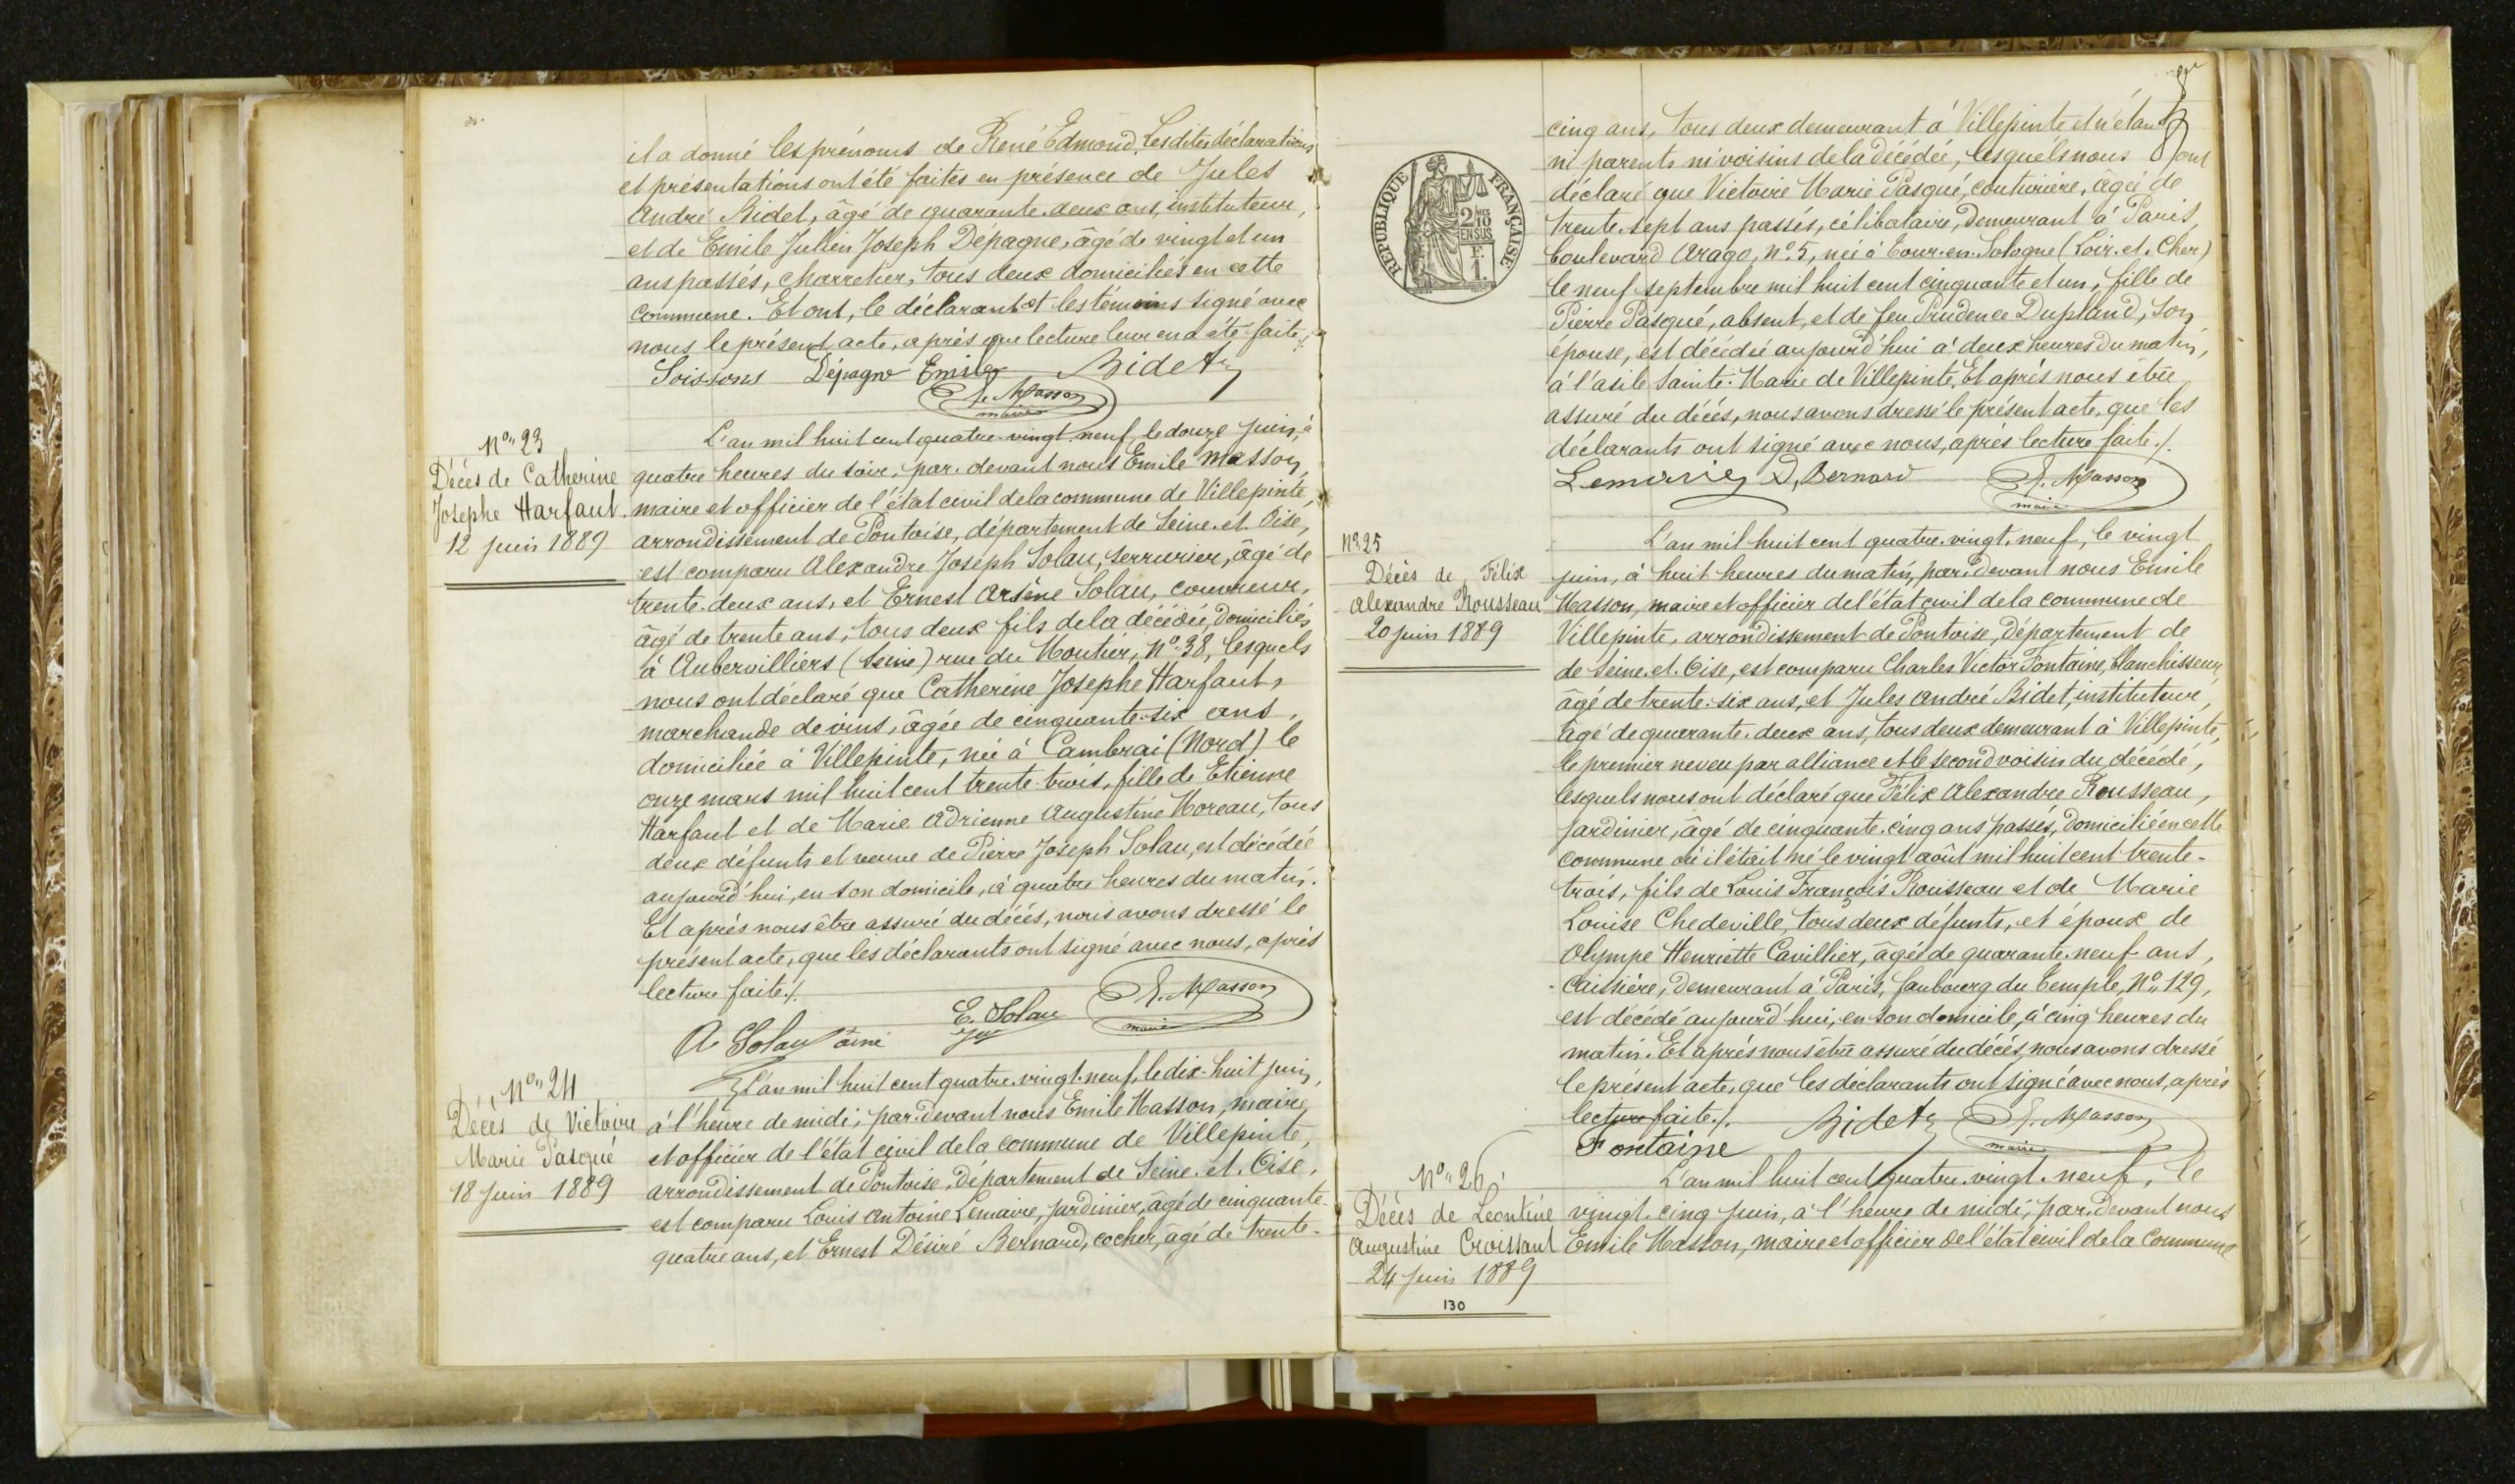 il a donné les prénoms de René Edmond. Lesdites déclarations
et présentations ont été faites en présence de Jules
André Bidet, âgé de quarante-deux ans, instituteur,
et de Emile Julien Joseph Dépagne, âgé de vingt et un
ans passés, charretier, tous deux domiciliés en cette
commune. Et ont, le déclarant et les témoins signé avec
nous le présent acte, après que lecture leur en a été faite./.
Soissons Dépagne Emile Bidet
E. Masson
maire
No 23
Décès de Catherine
Josephe Harfaut.
12 juin 1889
L'an mil huit cent quatre-vingt-neuf, le douze juin, à
quatre heures du soir, par-devant nous Emile Masson,
maire et officier de l'état civil de la commune de Villepinte,
arrondissement de Pontoise, département de Seine-et-Oise,
est comparu Alexandre Joseph Solau, serrurier, âgé de
trente-deux ans, et Ernest Arsène Solau, couvreur,
âgé de trente ans, tous deux fils de la décédée, domiciliés
à Aubervilliers (Seine) rue du Moutier, No 38, lesquels
nous ont déclaré que Catherine Josephe Harfaut,
marchande de vins, âgée de cinquante-six ans,
domiciliée à Villepinte, née à Cambrai (Nord) le
onze mars mil huit cent trente-trois, fille de Etienne
Harfaut et de Marie Adrienne Augustine Moreau, tous
deux défunts et veuve de Pierre Joseph Solau, est décédée
aujourd'hui, en son domicile, à quatre heures du matin.
Et après nous être assuré du décès, nous avons dressé le
présent acte, que les déclarants ont signé avec nous, après
lecture faite./.
A Solau ainé E. Solau E. Masson
maire
No 24
Décès de Victoire
Marie Pasqué
18 juin 1889
L'an mil huit cent quatre-vingt-neuf, le dix-huit juin,
à l'heure de midi, par-devant nous Emile Masson, maire
et officier de l'état civil de la commune de Villepinte,
arrondissement de Pontoise, département de Seine-et-Oise,
est comparu Louis Antoine Lemaire, jardinier, âgé de cinquante-
quatre ans, et Ernest Désiré Bernard, cocher, âgé de trente-
cinq ans, tous deux demeurant à Villepinte et n'étant
ni parents ni voisins de la décédée, lesquels nous ont
déclaré que Victoire Marie Pasqué, couturière, âgée de
trente-sept ans passés, célibataire, demeurant à Paris,
boulevard Arago, No 5, née à Tour-en-Sologne (Loir-et-Cher)
le neuf septembre mil huit cent cinquante et un, fille de
Pierre Pasqué, absent, et de feu Prudence Dupland, son
épouse, est décédée aujourd'hui à deux heures du matin,
à l'asile Sainte-Marie de Villepinte. Et après nous être
assuré du décès, nous avons dressé le présent acte, que les
déclarants ont signé avec nous, après lecture faite./.
D, Bernard E. Masson
maire
RÉPUBLIQUE FRANÇAISE
2 MES
10
EN SUS
F.
1.
No 25
Décès de Félix
Alexandre Rousseau
20 juin 1889
L'an mil huit cent quatre-vingt-neuf, le vingt
juin, à huit heures du matin, par-devant nous Emile
Masson, maire et officier de l'état civil de la commune de
Villepinte, arrondissement de Pontoise, département de
de Seine-et-Oise, est comparu Charles Victor Fontaine, blanchisseur
âgé de trente-six ans, et Jules André Bidet, instituteur,
âgé de quarante-deux ans, tous deux demeurant à Villepinte,
le premier neveu par alliance et le second voisin du décédé,
lesquels nous ont déclaré que Félix Alexandre Rousseau,
jardinier, âgé de cinquante-cinq ans passés, domicilié en cette
commune où il était né le vingt août mil huit cent trente-
trois, fils de Louis François Rousseau et de Marie
Louise Chedeville, tous deux défunts, et époux de
Olympe Henriette Cavillier, âgée de quarante-neuf ans,
caissière, demeurant à Paris, faubourg du Temple, No 129,
est décédé aujourd'hui, en son domicile, à cinq heures du
matin. Et après nous être assuré du décès, nous avons dressé
le présent acte, que les déclarants ont signé avec nous, après
lecture faite./. Bidet E. Masson
Fontaine maire
No 26
Décès de Léontine
Augustine Croissant
24 juin 1889
130
L'an mil huit cent quatre-vingt-neuf, le
vingt-cinq juin, à l'heure de midi, par-devant nous
Emile Masson, maire et officier de l'état civil de la commune